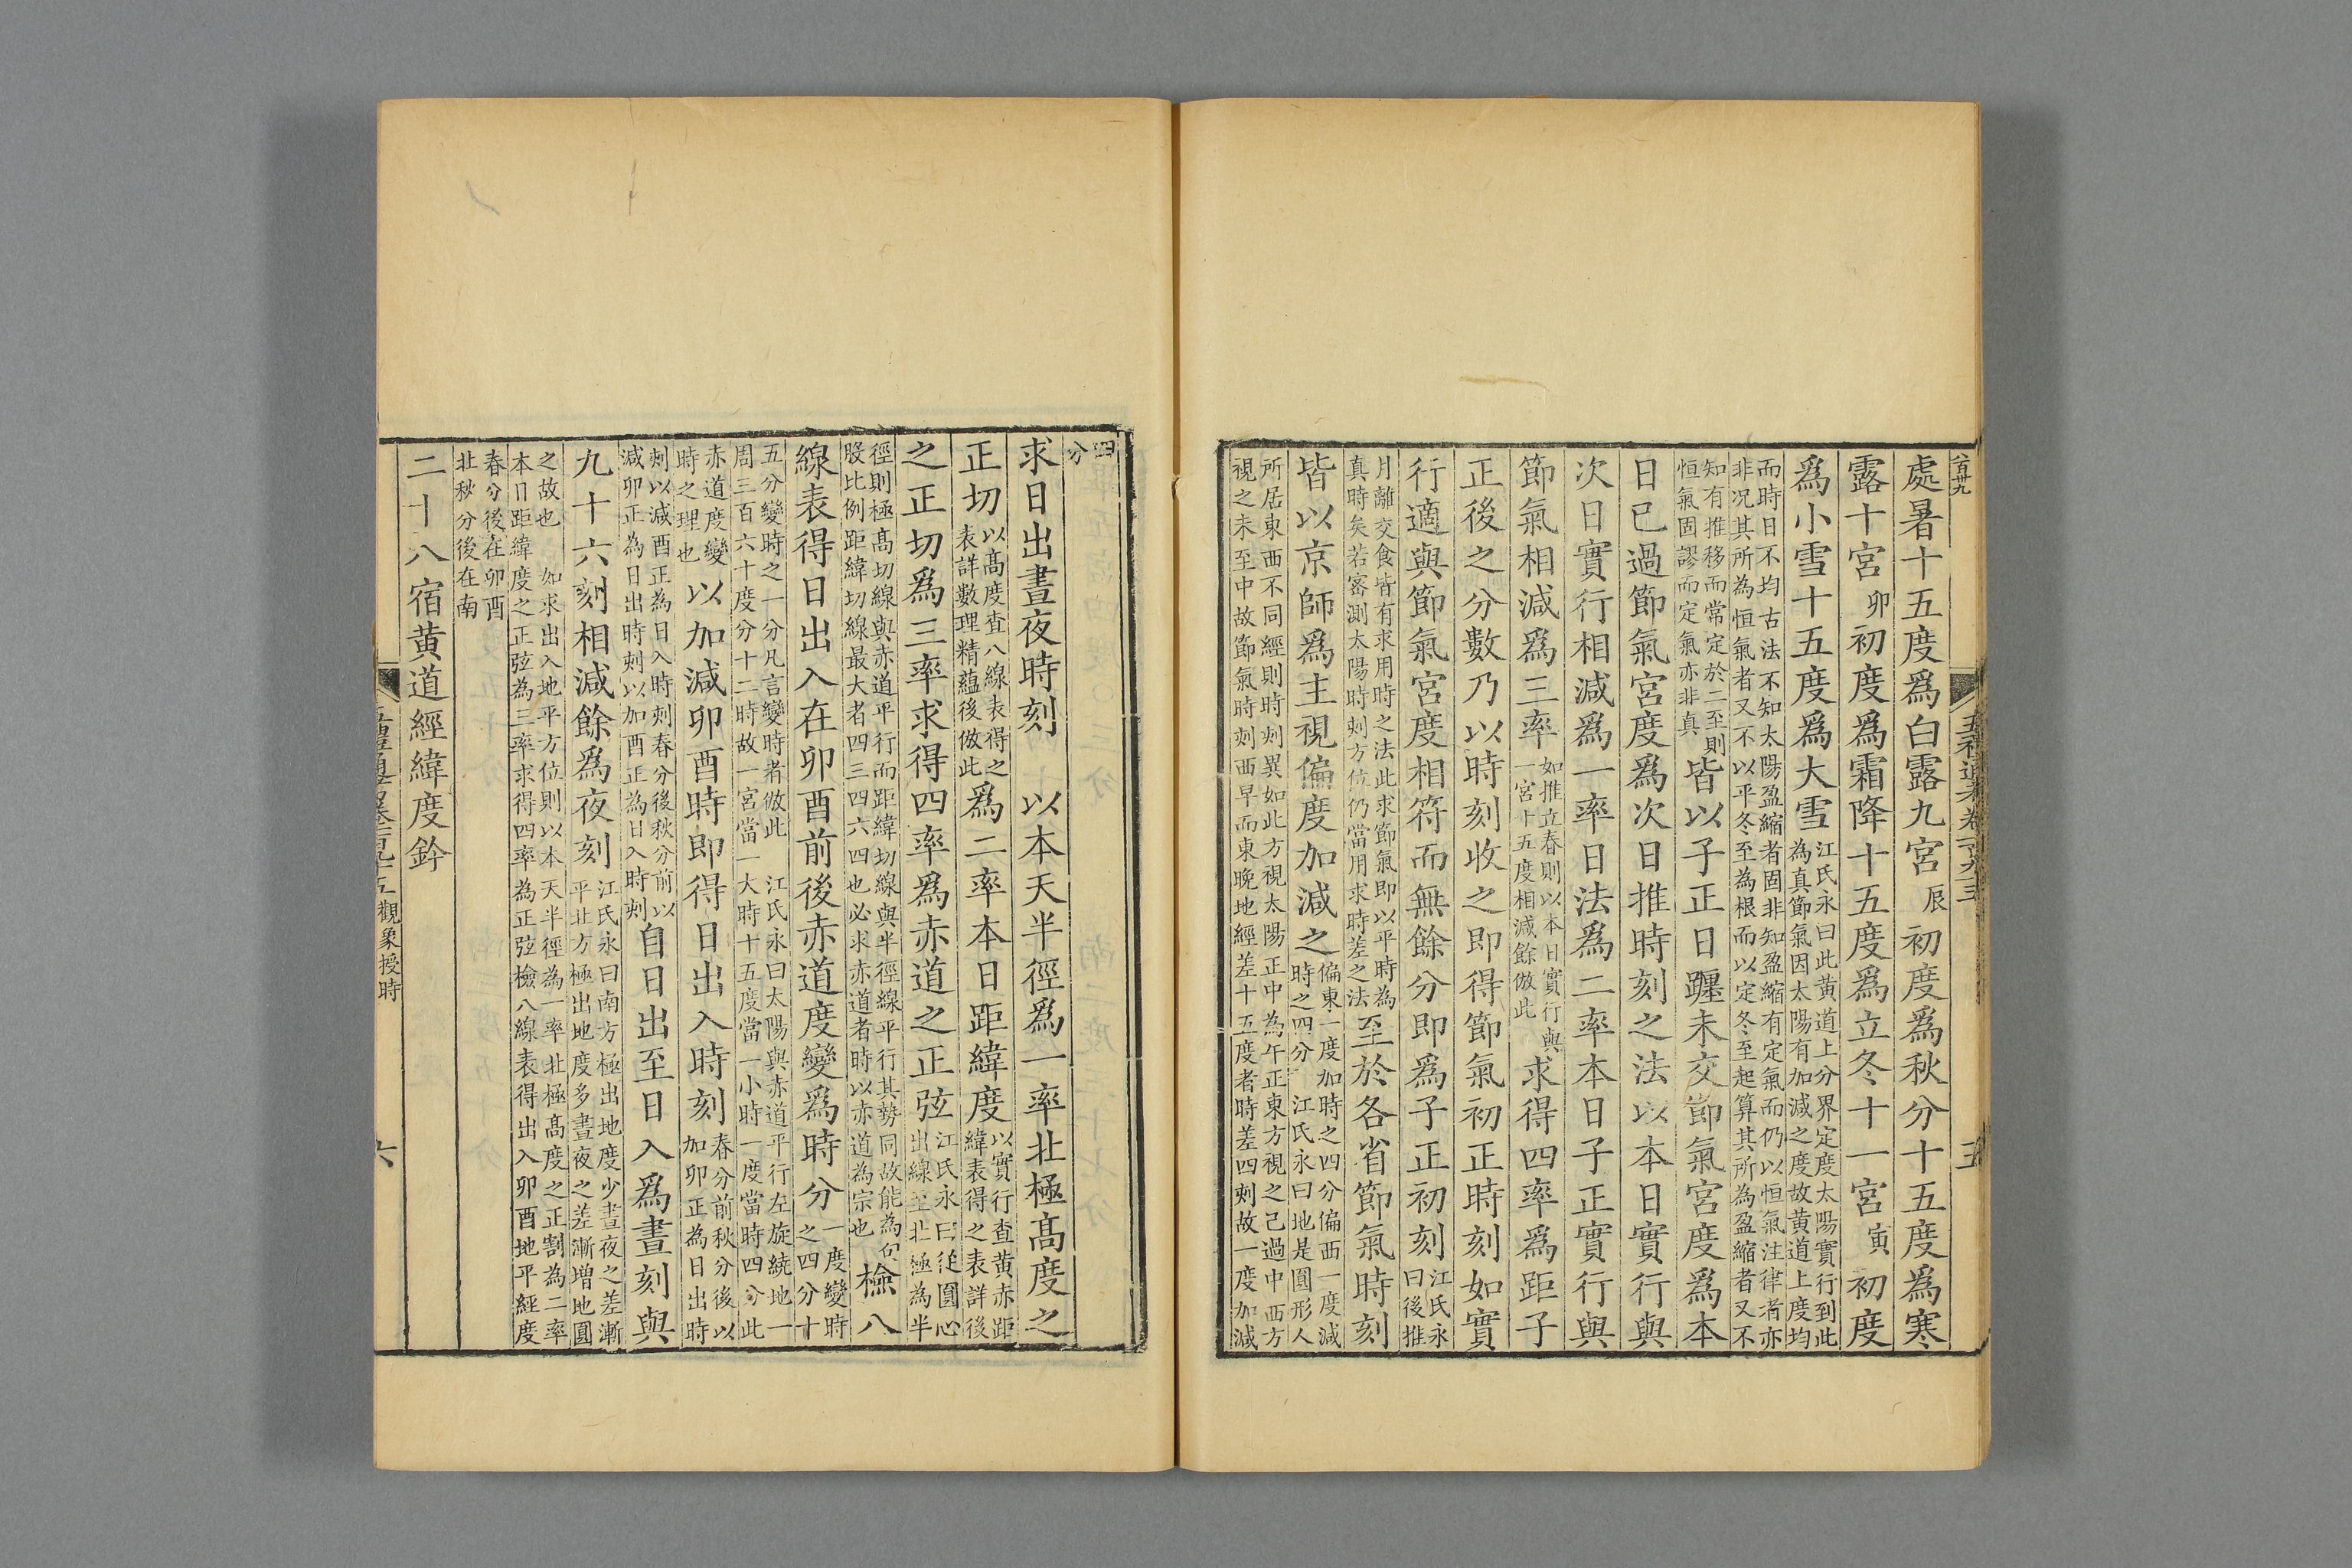 處暑十五度爲白露九宮辰初度爲秋分十五度爲寒
露十宮卯初度爲霜降十五度爲立冬十一宮寅初度
爲小雪十五度爲大雪江氏永曰此黃道上分界定度太陽實行到此
為真節氣因太陽有加減之度故黃道上度均
而時日不均古法不知太陽盈縮者固非知盈縮有定氣而仍以恒氣注律者亦
非况其所為恒氣者又不以平冬至為根而以定冬至起算其所為盈縮者又不
知有推移而常定於二至則
恒氣固謬而定氣亦非真
皆以子正日躔未交節氣宮度爲本
日已過節氣宮度爲次日推時刻之法以本日實行與
次日實行相減爲一率日法爲二率本日子正實行與
節氣相減爲三率如推立春則以本日實行與
一宮十五度相減餘倣此
求得四率爲距子
正後之分數乃以時刻收之即得節氣初正時刻如實
行適與節氣宮度相符而無餘分即爲子正初刻江氏永
曰後推
月離交食皆有求用時之法此求節氣即以平時為
真時矣若審測太陽時刻方位仍當用求時差之法
至於各省節氣時刻
皆以京師爲主視偏度加減之偏東一度加時之四分偏西一度減
時之四分 江氏永曰地是圓形人
所居東西不同經則時刻異如此方視太陽正中為午正東方視之己過中西方
視之未至中故節氣時刻西早而東晚地經差十五度者時差四刻故一度加減
四
分
求日出晝夜時刻 以本天半徑爲一率北極髙度之
正切以髙度查八線表得之
表詳數理精蘊後倣此
爲二率本日距緯度以實行查黃赤距
緯表得之表詳後
之正切爲三率求得四率爲赤道之正弦江氏永曰從圓心
出線至北極為半
徑則極髙切線與赤道平行而距緯切線與半徑線平行其勢同故能為句
股比例距緯切線最大者四三四六四也必求赤道者時以赤道為宗也
檢八
線表得日出入在卯酉前後赤道度變爲時分一度變時
之四分十
五分變時之一分凡言變時者倣此 江氏永曰太陽與赤道平行左旋繞地一
周三百六十度分十二時故一宮當一大時十五度當一小時一度當時四分此
赤道度變
時之理也
以加減卯酉時即得日出入時刻春分前秋分後以
加卯正為日出時
刻以減酉正為日入時刻春分後秋分前以
減卯正為日出時刻以加酉正為日入時刻
自日出至日入爲晝刻與
九十六刻相減餘爲夜刻江氏永曰南方極出地度少晝夜之差漸
平北方極出地度多晝夜之差漸增地圓
之故也 如求出入地平方位則以本天半徑為一率北極髙度之正割為二率
本日距緯度之正弦為三率求得四率為正弦檢八線表得出入卯酉地平經度
春分後在卯酉
北秋分後在南
二十八宿黃道經緯度鈐
觀象授時
六